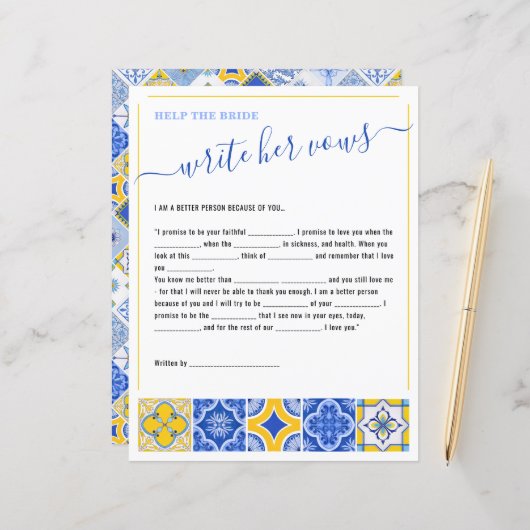 HELP THE BRIDE
write her vows
I AM A BETTER PERSON BECAUSE OF YOU...
"I promise to be your faithful ______________. I promise to love you when the
______________, when the ______________, in sickness, and health. When you
look at this ______________, think of ______________ and remember that I love
you ______________.
You know me better than ______________ ______________ and you still love me
- for that I will never be able to thank you enough. I am a better person
because of you and I will try to be ______________ of your ______________. I
promise to be the ______________ that I see now in your eyes, today,
______________, and for the rest of our ______________. I love you."
Written by ___________________________